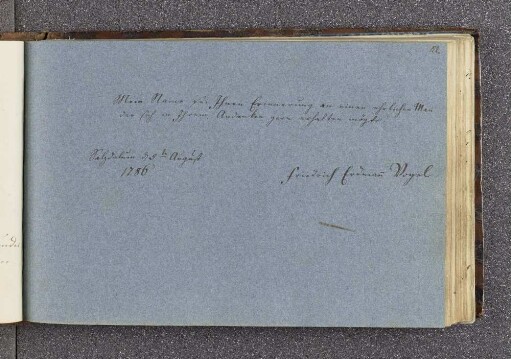 12
Mein Name sei Ihnen Erinnerung an einen ehrlichen Man
der sich in Ihrem Andenken gern erhalten mögte
Salzdalum d 6 August
1786
Friedrich Erdman Vogel